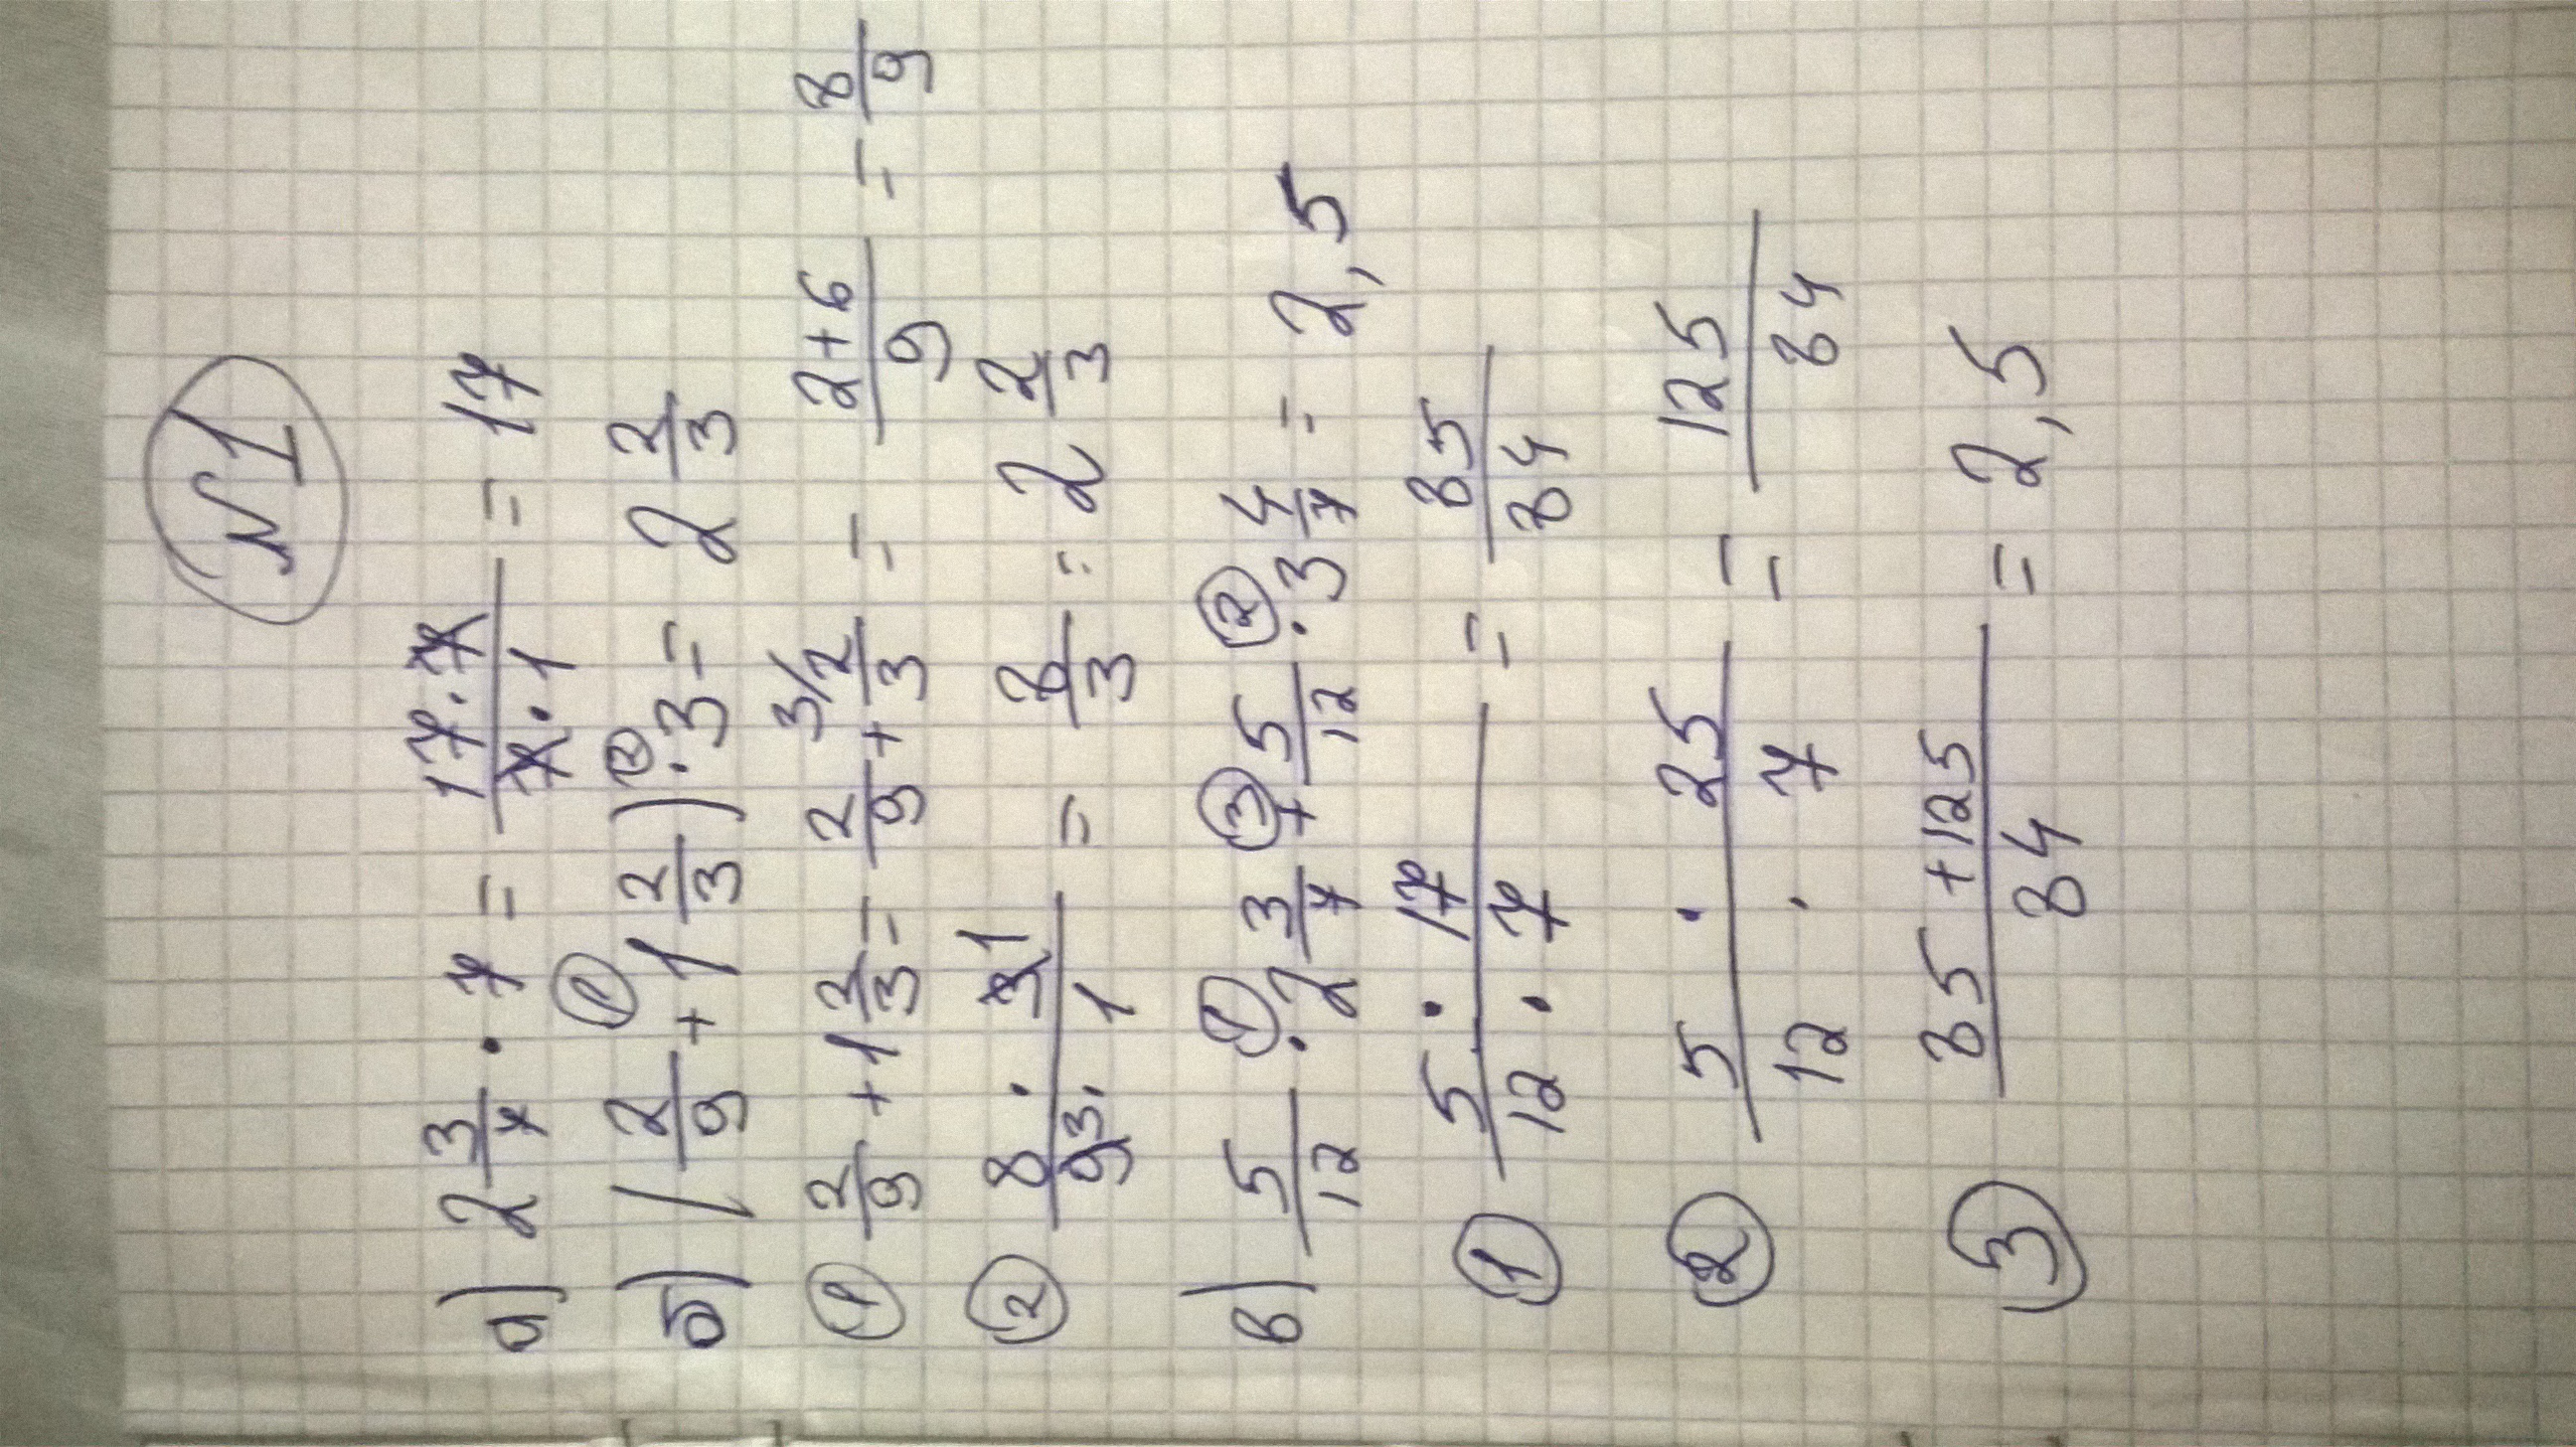 №1
а) 2 3/7 · 7 = 17·7/7·1 = 17
б) (2/9 + ① 1 2/3) ② · 3 = 2 2/3
① 2/9 + 1 2/3 = 2/9 + 3/ 2/3 = 2+6/9 = 8/9
② 8 · 3 1/9 3 · 1 = 8/3 = 2 2/3
в) 5/12 · ① 2 3/7 + ③ 5/12 · ② 3 4/7 = 2,5
① 5 · 17/12 · 7 = 85/84
② 5 · 25/12 · 7 = 125/84
③ 85 + 125/84 = 2,5